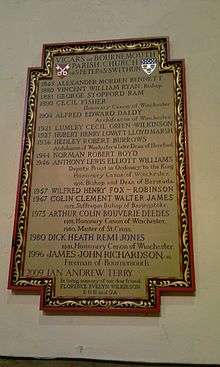 VICARS of BOURNEMOUTH
PARISH CHURCH
of ST PETER & ST SWITHUN
1845 ALEXANDER MORDEN BENNETT
1880 VINCENT WILLIAM RYAN, Bishop
1881 GEORGE STOPFORD RAM
1890 CECIL FISHER
Honorary Canon of Winchester
1904 ALFRED EDWARD DALDY
Archdeacon of Winchester
1921 LUMLEY CECIL GREEN WILKINSON
1927 HUBERT HENRY LEWITT LLOYD MARSH
1936 HENLEY ROBERT BURROWS
1944 NORMAN ROBERT BOYD
1946 ANTHONY LEWIS ELLIOTT WILLIAMS
Deputy Priest in Ordinary to the King
Honorary Canon of Winchester
1956 Bishop and Dean of Bermuda
1957 WILFRED HENRY FOX-ROBINSON
1967 COLIN CLEMENT WALTER JAMES
1973 Suffragan Bishop of Basingstoke
1973 ARTHUR COLIN BOUVERIE DEEDES
1978 Honorary Canon of Winchester
1980 Master of St. Cross
1980 DICK HEATH REMI JONES
Honorary Canon of Winchester
1996 JAMES JOHN RICHARDSON
Freeman of Bournemouth
2009 IAN ANDREW TERRY
In loving memory of our dear friend
FLORENCE EVELYN WILKINSON